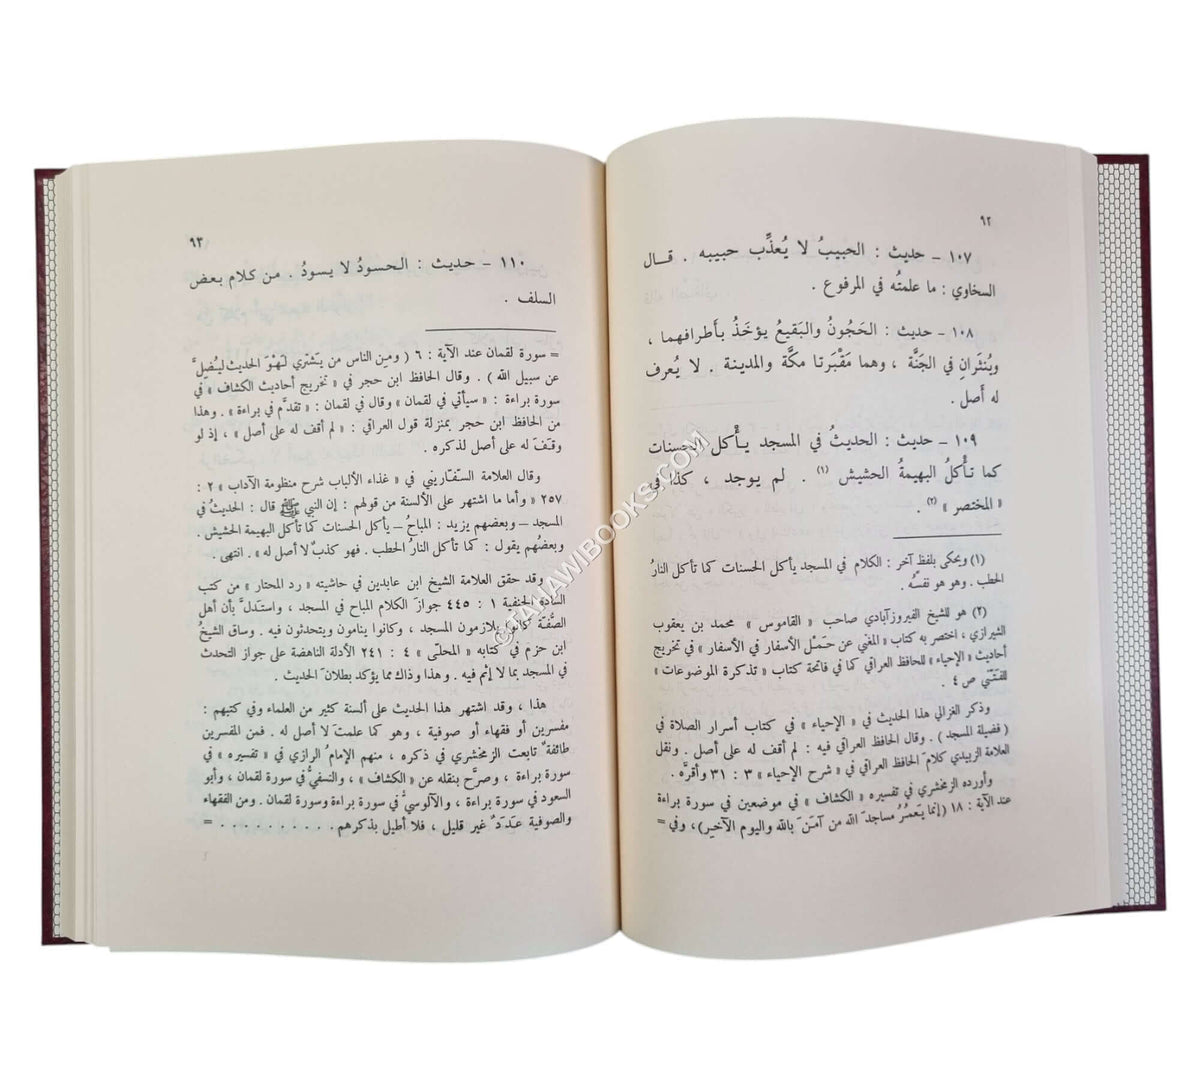 ٩٢
١٠٧ - حديث : الحبيبُ لا يُعذِّب حبيبه . قال
السخاوي : ما علمتُه في المرفوع .
١٠٨ - حديث : الحَجُونُ والبَقيعُ يؤخَذُ بأَطرافهما ،
ويُنثَرانِ في الجَنَّة ، وهما مَقْبَرتا مكَّة والمدينة . لا يُعرف
له أَصل .
١٠٩ - حديث : الحديثُ في المسجد يأْكل الحسنات
كما تأْكلُ البهيمةُ الحشيش (١) . لم يوجد ، كذا في
« المختصر » (٢) .
(١) ويحكى بلفظ آخر : الكلام في المسجد يأكل الحسنات كما تأكل النارُ
الحطب . وهو هو نفسُه .
(٢) هو للشيخ الفيروزآبادي صاحب « القاموس » محمد بن يعقوب
الشيرازي ، اختصر به كتاب « المغني عن حَمْل الأسفار في الأسفار في تخريج
أحاديث « الإحياء » للحافظ العراقي كما في فاتحة كتاب « تذكرة الموضوعات »
للفَتَّني ص ٤ .
وذكر الغزالي هذا الحديث في « الإحياء » في كتاب أسرار الصلاة في
( فضيلة المسجد ) . وقال الحافظ العراقي فيه : لم أقف له على أصل . ونقل
العلامة الزبيدي كلامَ الحافظ العراقي في « شرح الإحياء » ٣ : ٣١ وأقرَّه .
وأورده الزمخشري في تفسيره « الكشاف » في موضعين في سورة براءة
عند الآية : ١٨ (إنما يَعمُرُ مساجدَ الله من آمَنَ بالله واليوم الآخِر)، وفي =
٩٣
١١٠ - حديث : الحسودُ لا يسودُ . من كلام بعض
السلف .
= سورة لقمان عند الآية : ٦ ( ومِن الناس من يَشتري لَهْوَ الحديث ليُضِلَّ
عن سبيل الله ) . وقال الحافظ ابن حجر في « تخريج أحاديث الكشاف » في
سورة براءة : « سيأتي في لقمان » وقال في لقمان : « تقدَّم في براءة » . وهذا
من الحافظ ابن حجر بمنزلة قول العراقي : « لم أقف له على أصل » ، إذ لو
وقَفَ له على أصل لذكره .
وقال العلامة السَّفّاريني في « غذاء الألباب شرح منظومة الآداب » ٢ :
٢٥٧ « وأما ما اشتهر على الألسنة من قولهم : إن النبي ﷺ قال : الحديثُ في
المسجد – وبعضهم يزيد : المباحُ – يأكل الحسنات كما تأكل البهيمة الحشيش .
وبعضُهم يقول : كما تأكل النارُ الحطب . فهو كذبٌ لا أصل له » . انتهى .
وقد حقق العلامة الشيخ ابن عابدين في حاشيته « رد المحتار » من كتب
السادة الحنفية ١ : ٤٤٥ جوازَ الكلام المباح في المسجد ، واستدلَّ بأن أهل
الصُّفَّة كانوا يلازمون المسجد ، وكانوا ينامون ويتحدثون فيه . وساق الشيخُ
ابن حزم في كتابه « المحلّى » ٤ : ٢٤١ الأدلة الناهضة على جواز التحدث
في المسجد بما لا إثم فيه . وهذا وذاك مما يؤكد بطلانَ الحديث .
هذا ، وقد اشتهر هذا الحديث على ألسنة كثير من العلماء وفي كتبهم :
مفسرين أو فقهاء أو صوفية ، وهو كما علمتَ لا أصل له . فمن المفسرين
طائفةٌ تابعت الزمخشري في ذكره ، منهم الإمامُ الرازي في « تفسيره » في
سورة براءة ، وصرَّح بنقله عن « الكشاف » ، والنسفيُّ في سورة لقمان ، وأبو
السعود في سورة براءة ، والآلوسيُّ في سورة براءة وسورة لقمان . ومن الفقهاء
والصوفية عَدَدٌ غير قليل ، فلا أطيل بذكرهم . . . . . . . . . . . =
©TAHAWIBOOKS.COM